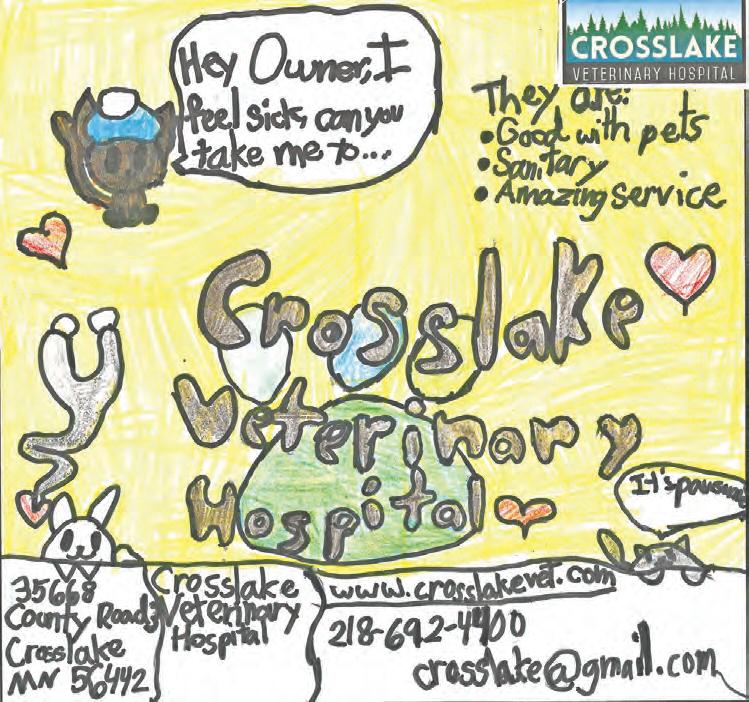 CROSSLAKE
VETERINARY HOSPITAL
Hey Owner, I
feel sick, can you
take me to...
They are:
• Good with pets
• Sanitary
• Amazing service
Crosslake
Veterinary
Hospital
It's pawsome
35668
County Road 3
Crosslake
MN 56442
Crosslake
Veterinary
Hospital
www.crosslakevet.com
218-692-4400
crosslake@gmail.com